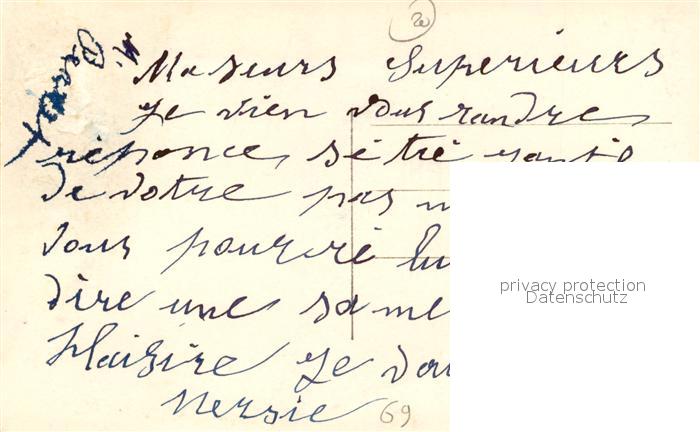 20
Ma Seurs Superieurs
Je vien vous randre
réponce, sé tré
de votre pas
Vous pourré lu
dire une same
plaisire Je vou
Mersie
69
privacy protection
Datenschutz